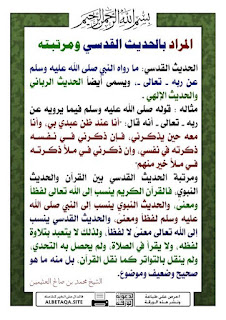 بسم الله الرحمن الرحيم
المراد بالحديث القدسي ومرتبته
الحديث القدسي: ما رواه النبي صلى الله عليه وسلم
عن ربه - تعالى -، ويسمى أيضاً الحديث الرباني
والحديث الإلهي.
مثاله: قوله صلى الله عليه وسلم فيما يرويه عن
ربه - تعالى - أنه قال: "أنا عند ظن عبدي بي، وأنا
معه حين يذكرني، فإن ذكرني في نفسه
ذكرته في نفسي، وإن ذكرني في ملأ ذكرته
في ملأ خير منهم"
ومرتبة الحديث القدسي بين القرآن والحديث
النبوي، فالقرآن الكريم ينسب إلى الله تعالى لفظاً
ومعنى، والحديث النبوي ينسب إلى النبي صلى الله
عليه وسلم لفظاً ومعنى، والحديث القدسي ينسب
إلى الله تعالى معنى لا لفظاً، ولذلك لا يتعبد بتلاوة
لفظه، ولا يقرأ في الصلاة، ولم يحصل به التحدي،
ولم ينقل بالتواتر كما نقل القرآن، بل منه ما هو
صحيح وضعيف وموضوع.
الشيخ محمد بن صالح العثيمين
ALBETAQA.SITE
احرص على طباعة
ونشر هذه البطاقة